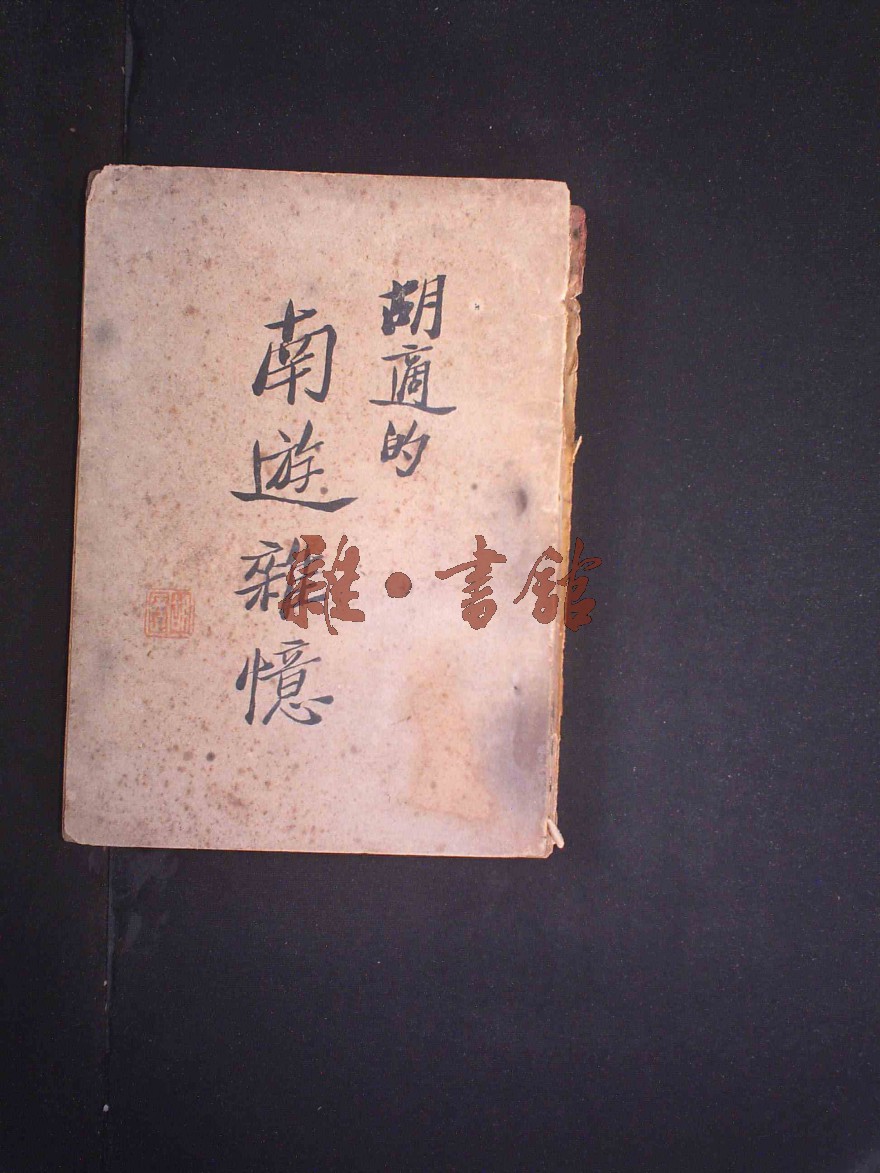 胡適的
南遊雜憶
雜·書館